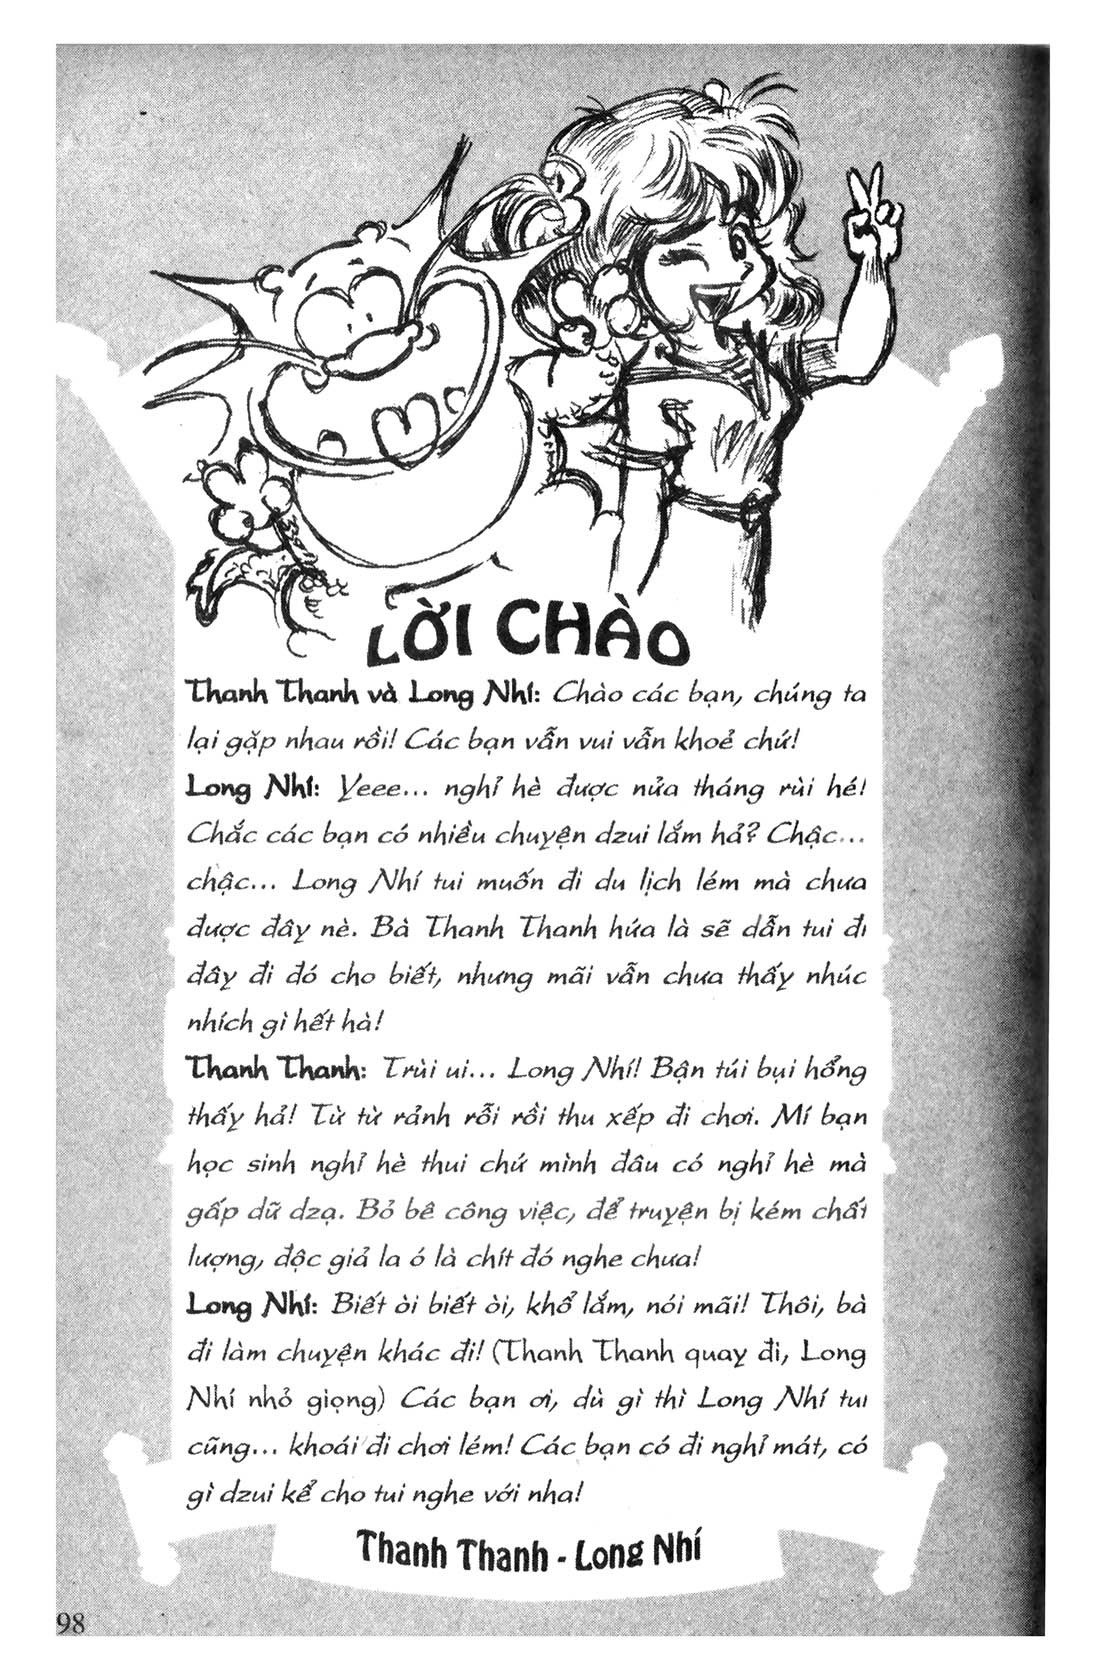 LỜI CHÀO
Thanh Thanh và Long Nhí: Chào các bạn, chúng ta
lại gặp nhau rồi! Các bạn vẫn vui vẫn khoẻ chứ!
Long Nhí: Yeee... nghỉ hè được nửa tháng rùi hé!
Chắc các bạn có nhiều chuyện dzui lắm hả? Chậc...
chậc... Long Nhí tui muốn đi du lịch lém mà chưa
được đây nè. Bà Thanh Thanh hứa là sẽ dẫn tui đi
đây đi đó cho biết, nhưng mãi vẫn chưa thấy nhúc
nhích gì hết hà!
Thanh Thanh: Trùi ui... Long Nhí! Bận túi bụi hổng
thấy hả! Từ từ rảnh rỗi rồi thu xếp đi chơi. Mí bạn
học sinh nghỉ hè thui chứ mình đâu có nghỉ hè mà
gấp dữ dzạ. Bỏ bê công việc, để truyện bị kém chất
lượng, độc giả la ó là chít đó nghe chưa!
Long Nhí: Biết òi biết òi, khổ lắm, nói mãi! Thôi, bà
đi làm chuyện khác đi! (Thanh Thanh quay đi, Long
Nhí nhỏ giọng) Các bạn ơi, dù gì thì Long Nhí tui
cũng... khoái đi chơi lém! Các bạn có đi nghỉ mát, có
gì dzui kể cho tui nghe với nha!
Thanh Thanh - Long Nhí
98